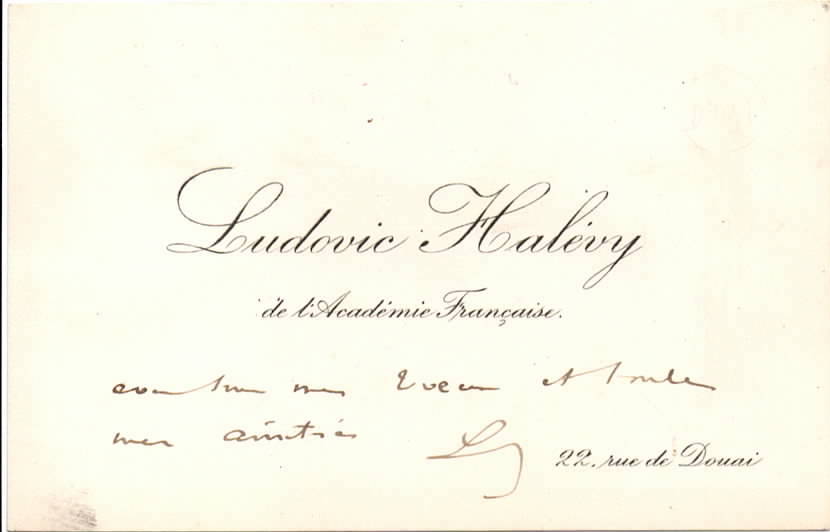 Ludovic Halévy
de l'Académie Française.
avec tous mes voeux et toutes
mes amitiés
22, rue de Douai